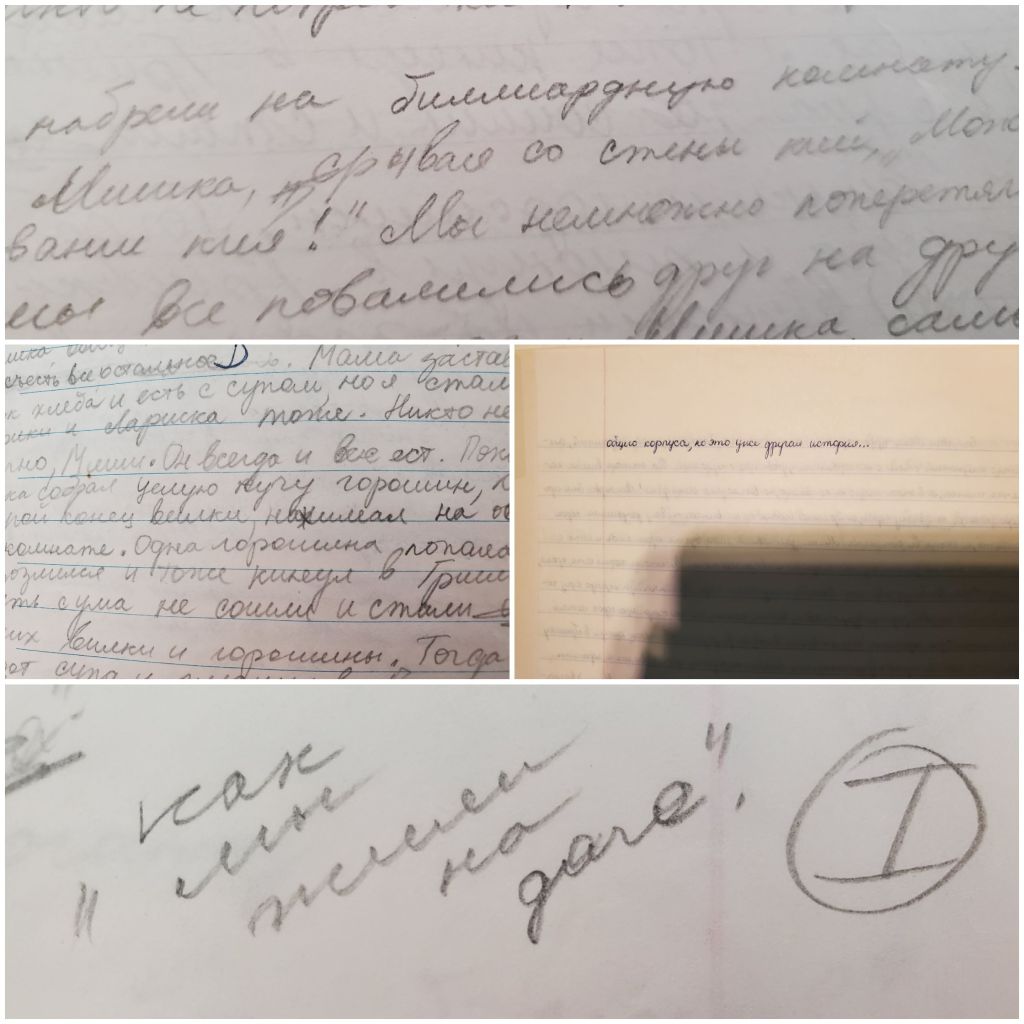 набрели на биллиардную комнату.
Мишка, срывая со стены кий, „Мож
вании кия!" Мы немножко поперетяг
мы все повалились друг на дру
Мишка, сами
съесть все остальное
. Мама застав
к хлеба и есть с супом, но я стал
и Лариска тоже. Никто не
но, Миши. Он всегда и все ест. Пок
ка собрал целую кучу горошин,
рой конец вилки, нажимал на
комнате. Одна горошина попала
озлился и тоже кинул в Гриш
ть с ума не сошли и стали
их вилки и горошины. Тогда
от супа и
общего корпуса, но это уже другая история...
"Как
мы
жили
на
даче".
I